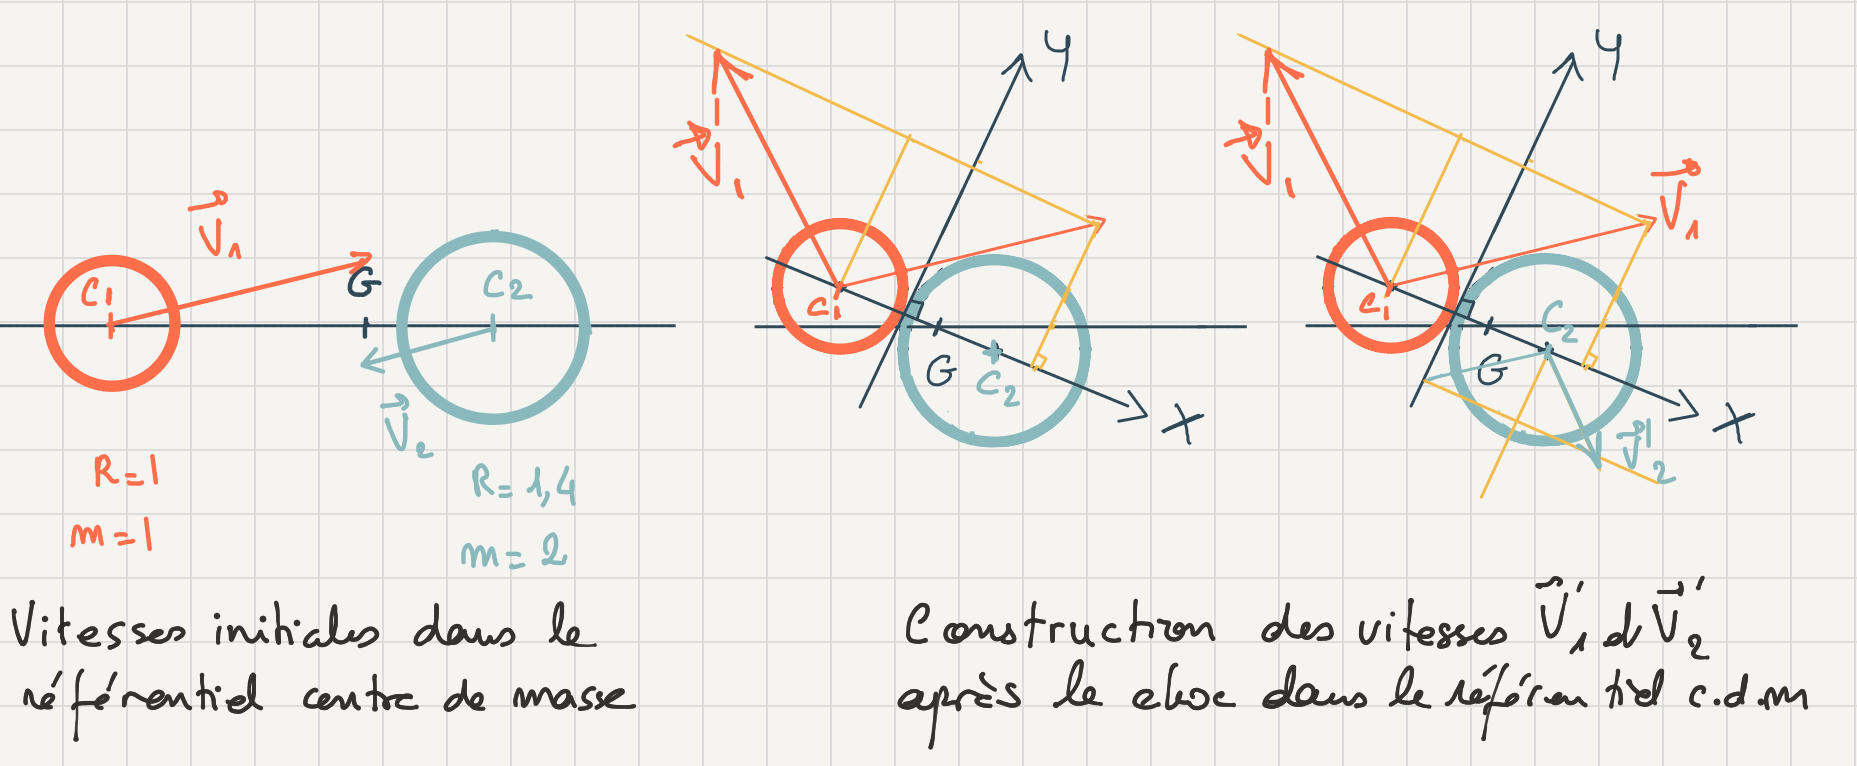 V⃗₁
C₁
G
C₂
V⃗₂
R=1
m=1
R=1,4
m=2
Vitesses initiales dans le
référentiel centre de masse
y
V⃗'₁
C₁
G
C₂
x
y
V⃗'₁
V⃗₁
C₁
C₂
G
x
V⃗'₂
Construction des vitesses V⃗'₁ d V⃗'₂
après le choc dans le référentiel c.d.m